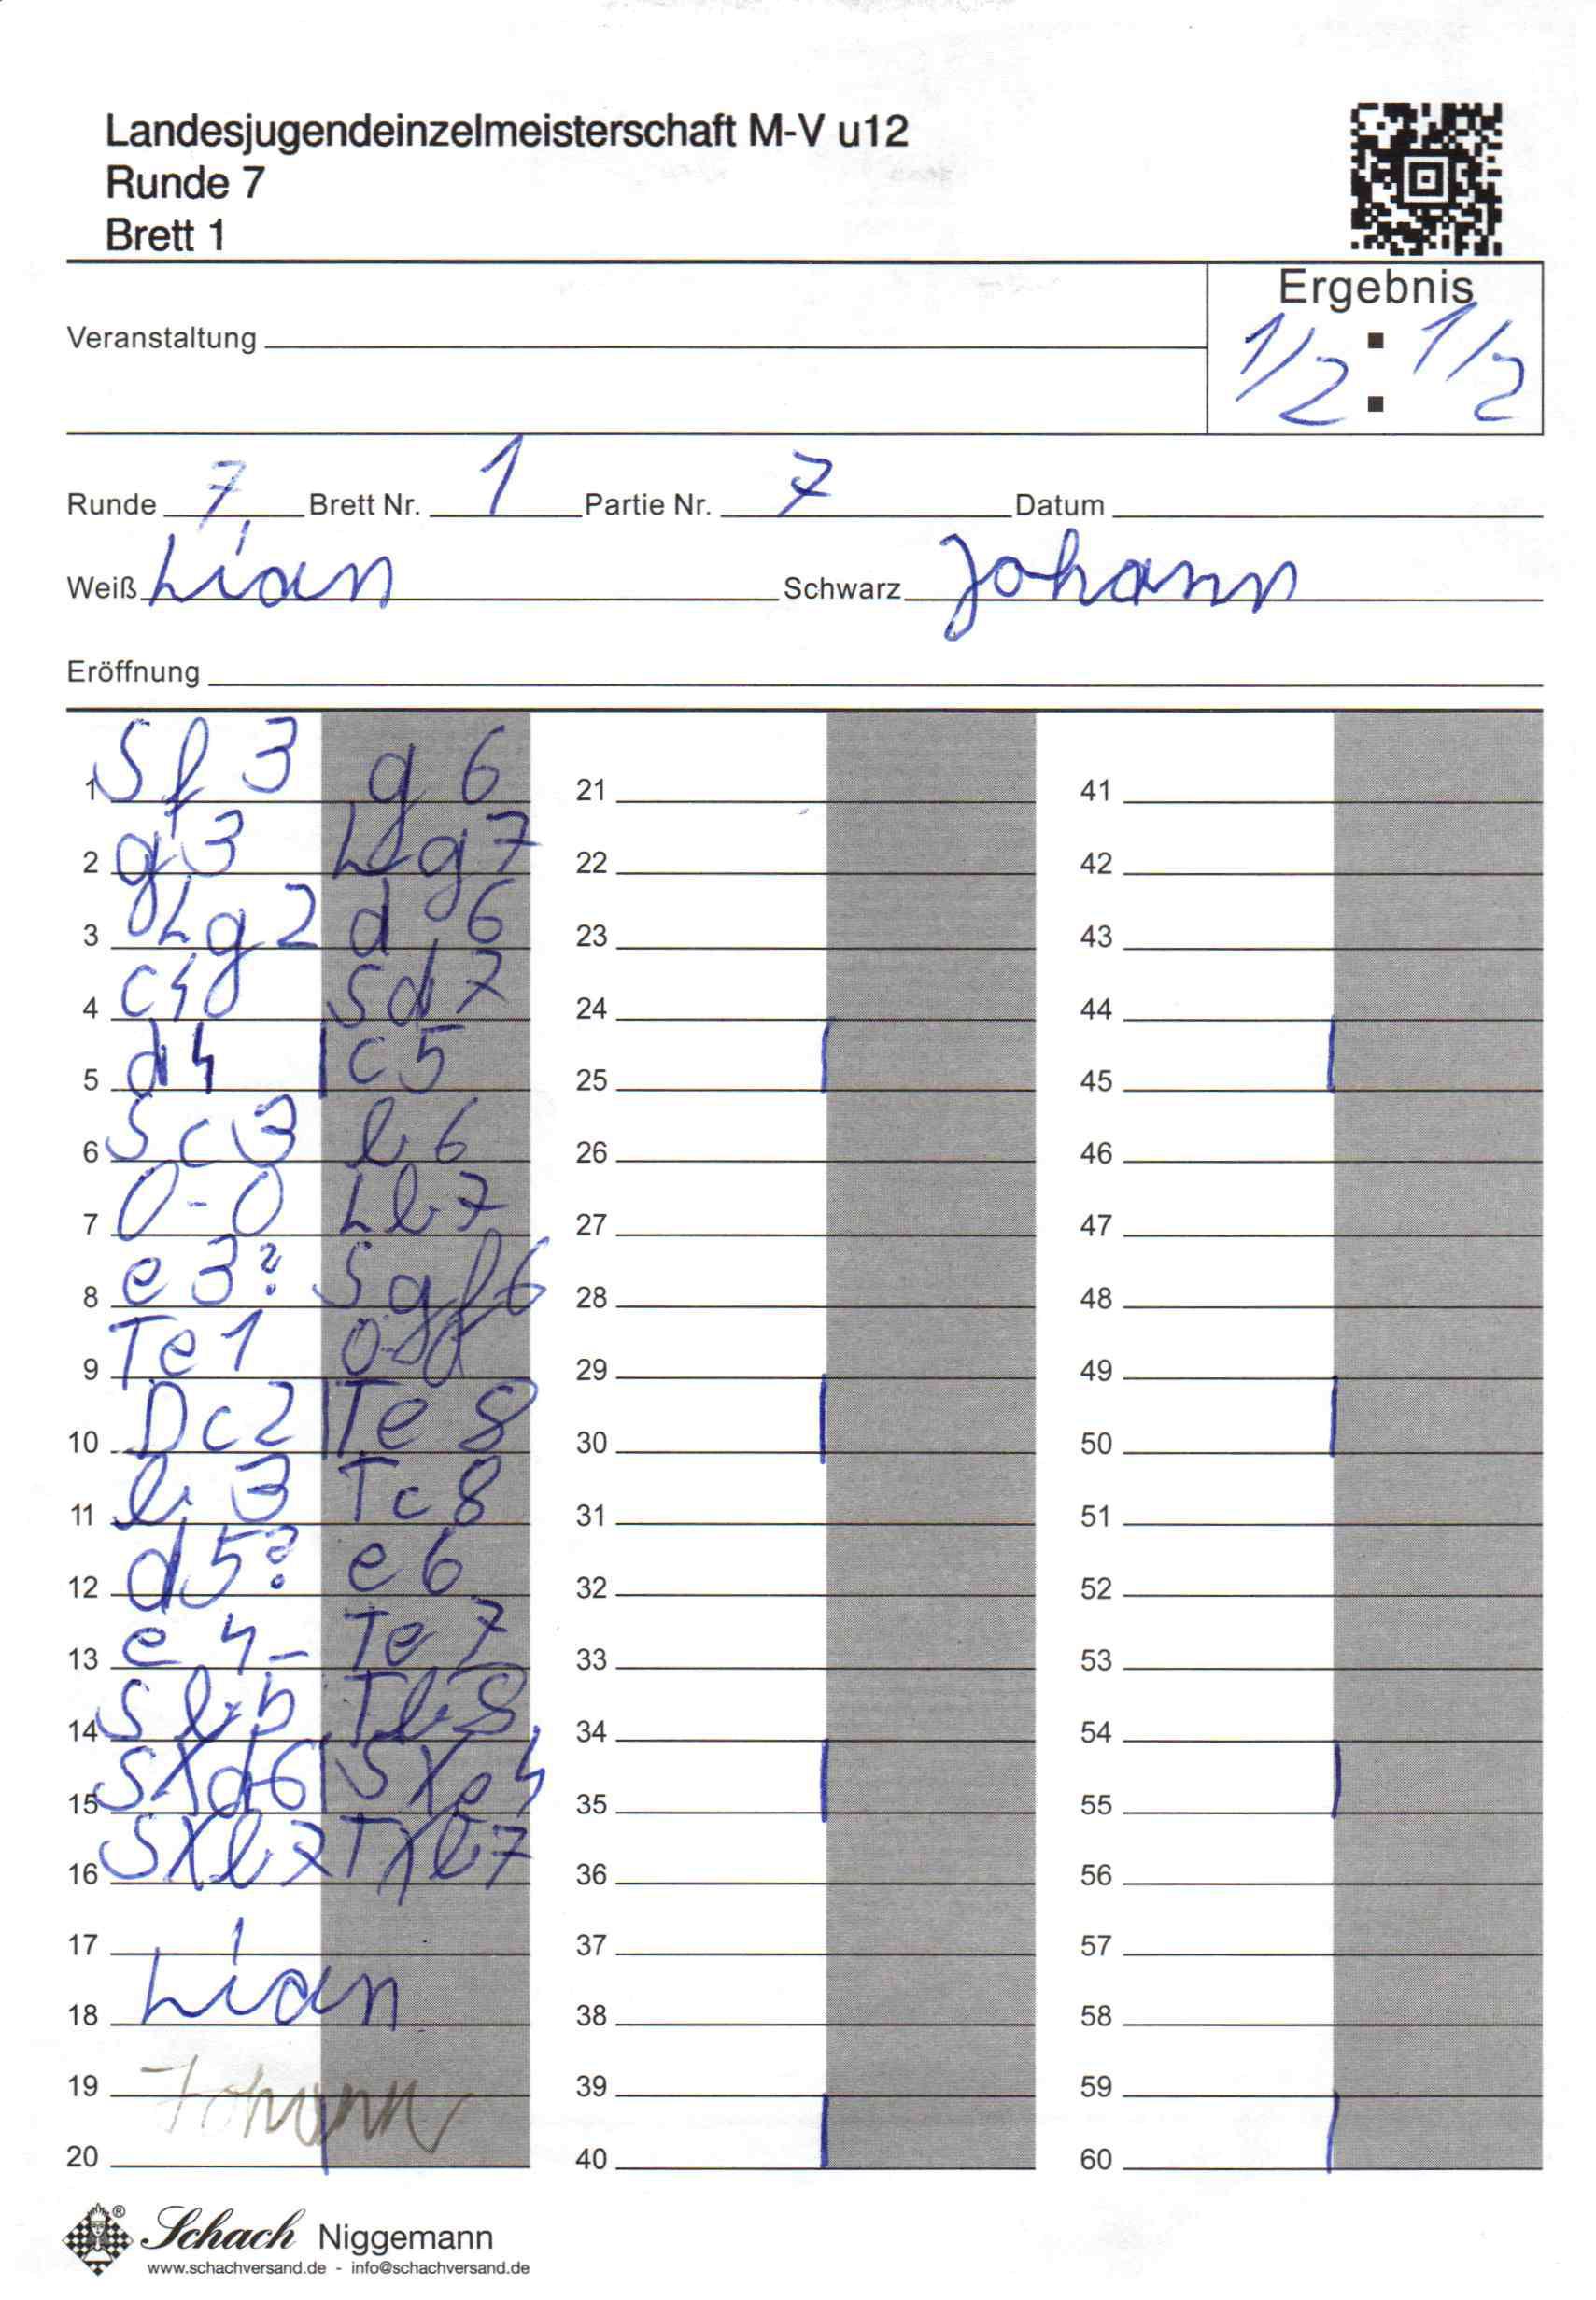 Landesjugendeinzelmeisterschaft M-V u12
Runde 7
Brett 1
Ergebnis
Veranstaltung
1/2 : 1/2
Runde 7 Brett Nr. 1 Partie Nr. 7 Datum
Weiß Lian Schwarz Johann
Eröffnung
1 Sf3 g6 21 41
2 g3 Lg7 22 42
3 Lg2 d6 23 43
4 c4 Sd7 24 44
5 d4 c5 25 45
6 Sc3 b6 26 46
7 0-0 Lb7 27 47
8 e3? Sgf6 28 48
9 Te1 0-0 29 49
10 Dc2 Te8 30 50
11 b3 Tc8 31 51
12 d5? e6 32 52
13 e4- Te7 33 53
14 Sb5 Tb8 34 54
15 SXd6 SXe4 35 55
16 SXb7 TXb7 36 56
17 37 57
18 Lian 38 58
19 Johann 39 59
20 40 60
Schach Niggemann
www.schachversand.de - info@schachversand.de